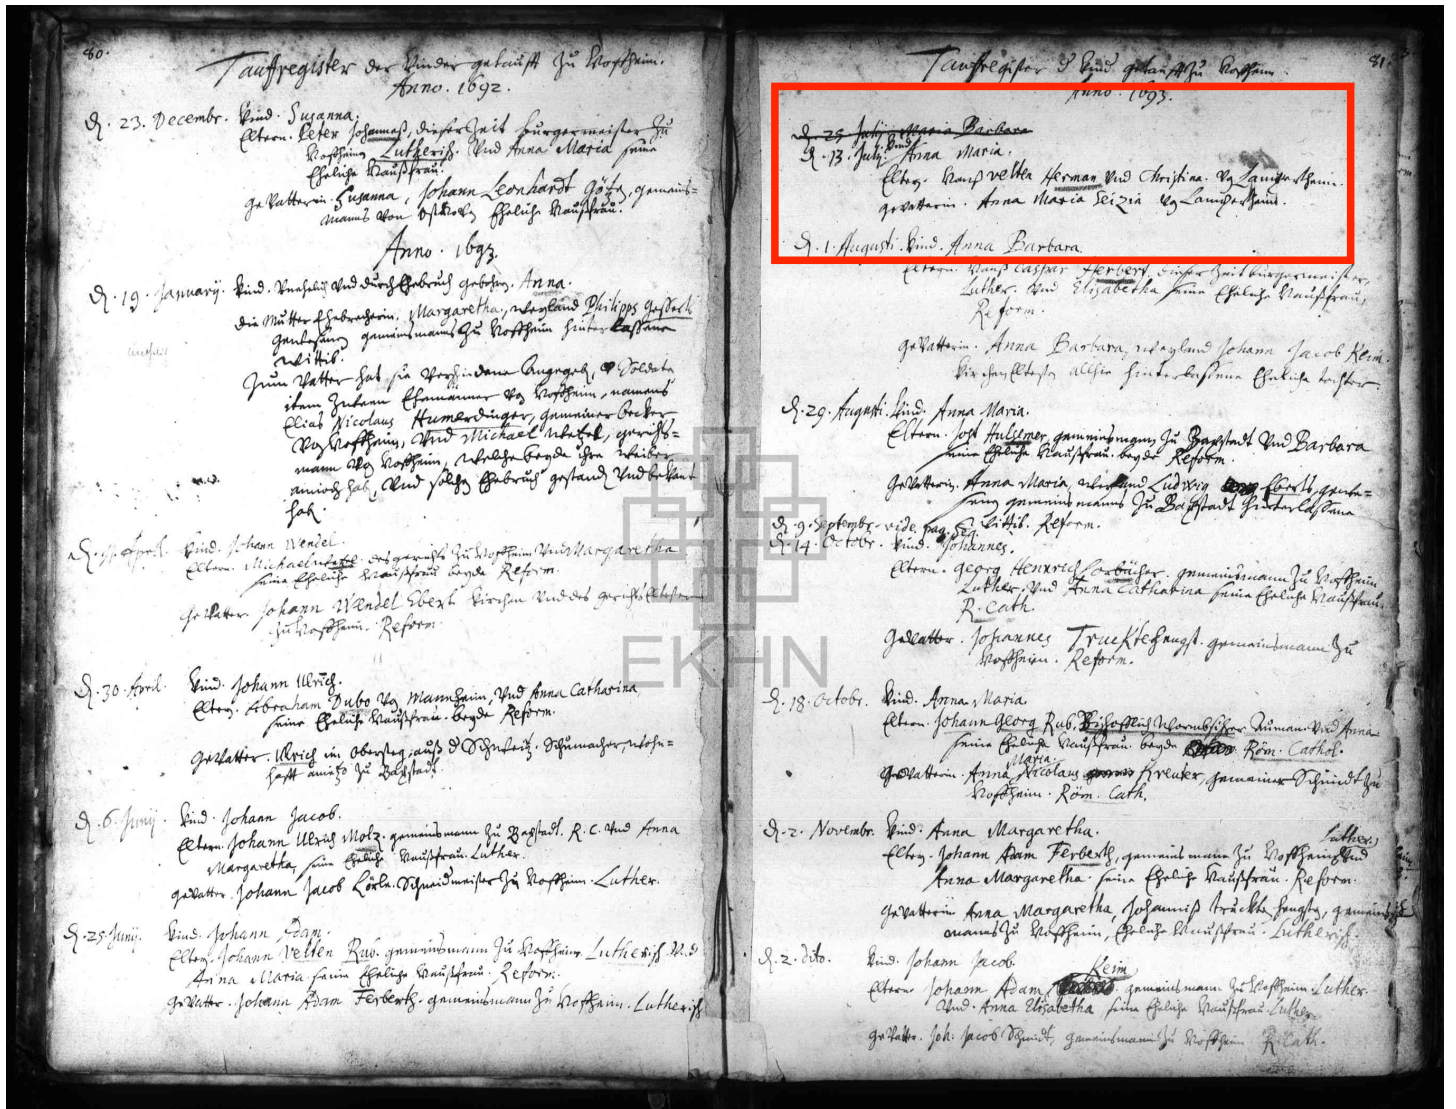 80.
Tauffregister der Kinder getaufft zu Hoffheim.
Anno. 1692.
D. 23. Decembr. Kind. Susanna.
Eltern. Peter Johannes, dieser Zeit burgermeister zu
Hoffheim Lutherisch. Und Anna Maria seine
Eheliche Haußfrau.
Gevatterin. Susanna, Johann Leonhardt Götz, gemeins=
manns von Eheliche Haußfrau.
Anno. 1693.
D. 19. January. Kind. Unehelich und durch Ehebruch gebohren. Anna.
Die Mutter Ehebrecherin. Margaretha, weyland Philipps
gewesenen gemeinsmanns zu Hoffheim hinterlassene
Wittib.
Zum Vatter hat sie verschiedene angegeb, Soldate
item zween Ehemänner von Hoffheim, namens
Elias Nicolaus Humerdinger, gemeiner becker
von Hoffheim, Und Michael Wetzel, gerichts=
mann von Hoffheim, welche beyde ihre weiber
hab, Und solchen Ehebruch gestanden Und bekant
hab.
April. Kind. Johann Wendel.
Eltern. Michael Wetzel des gerichts zu Hoffheim Und Margaretha
seine Eheliche Haußfrau beyde Reform.
Gevatter. Johann Wendel Ebert Kirchen Und des gerichts Eltester
zu Hoffheim. Reform.
D. 30. April. Kind. Johann Ulrich.
Eltern. Abraham Dubo von Mannheim, Und Anna Catharina
seine Eheliche Haußfrau. beyde Reform.
Gevatter. Ulrich im Obersteg, auß d Schweitz. Schumacher, wohn=
hafft zu Bobstadt.
D. 6. Juny. Kind. Johann Jacob.
Eltern. Johann Ulrich Motz. gemeinsmann zu Bobstadt. R. C. Und Anna
Margaretha, seine Eheliche Haußfrau. Luther.
Gevatter. Johann Jacob Lörle. Schneidmeister zu Hoffheim. Luther.
D. 25. Juny. Kind. Johann Adam.
Eltern. Johann Velten Rub. gemeinsmann zu Hoffheim. Lutherisch. Und
Anna Maria seine Eheliche Haußfrau. Reform.
Gevatter. Johann Adam Ferberth. gemeinsmann zu Hoffheim. Lutherisch
81.
Tauffregister d Kind getaufft zu Hoffheim.
Anno. 1693.
D. 25 July Maria Barbara
D. 13. July. Kind Anna Maria.
Eltern. Hanß Velten Herman Und Christina. von Lampertheim.
Gevatterin. Anna Maria Seizin von Lampertheim.
D. 1. Augusti. Kind. Anna Barbara.
Eltern. Hanß Caspar Herbert, dieser Zeit burgermeister,
Luther. Und Elisabetha seine Eheliche Haußfrau,
Reform.
Gevatterin. Anna Barbara, weyland Johann Jacob Keim.
Kirchen Eltesten allhie hinterlassene Eheliche tochter.
D. 29. Augusti. Kind. Anna Maria.
Eltern. Jost Hulsemer, gemeinsmann zu Bobstadt Und Barbara
seine Eheliche Haußfrau. beyde Reform.
Gevatterin. Anna Maria, weyland Ludwig Eberts, gewe=
senen gemeinsmanns zu Bobstadt hinterlassene
Wittib. Reform.
D. 9. Septembr. vide pag.
D. 14. Octobr. Kind. Johannes.
Eltern. Georg Henrich Lorbücher. gemeinsmann zu Hoffheim
Luther. Und Anna Catharina seine Eheliche Haußfrau.
R. Cath.
Gevatter. Johannes Trucktehengst. gemeinsmann zu
Hoffheim. Reform.
D. 18. Octobr. Kind. Anna Maria
Eltern. Johann Georg Rub. Bischofflich Wormbsischer Und Anna
seine Eheliche Haußfrau. beyde Röm. Cathol.
Gevatterin. Anna Maria Nicolaus Kreuter, gemeiner Schmidt zu
Hoffheim. Röm. Cath.
D. 2. Novembr. Kind. Anna Margaretha.
Eltern. Johann Adam Ferberth, gemeinsmann zu Hoffheim Luther. Und
Anna Margaretha. seine Eheliche Haußfrau. Reform.
Gevatterin Anna Margaretha, Johanniß truckte hengsts, gemeins
manns zu Hoffheim, Eheliche Haußfrau. Lutherisch.
D. 2. dito. Kind. Johann Jacob.
Eltern. Johann Adam Keim gemeinsmann zu Hoffheim. Luther.
Und. Anna Elisabetha seine Eheliche Haußfrau. Luther.
Gevatter. Joh: Jacob Schmidt, gemeinsmann zu Hoffheim R. Cath.
EKHN